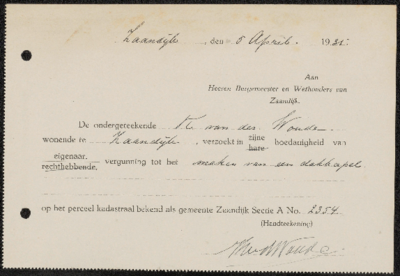 Zaandijk, den 8 April 1921.
Aan
Heeren Burgemeester en Wethouders van
Zaandijk.
De ondergeteekende K. van der Woude
wonende te Zaandijk, verzoekt in zijne hare hoedanigheid van
eigenaar, rechthebbende, vergunning tot het maken van een dakkapel
op het perceel kadastraal bekend als gemeente Zaandijk Sectie A No. 2354.
(Handteekening)